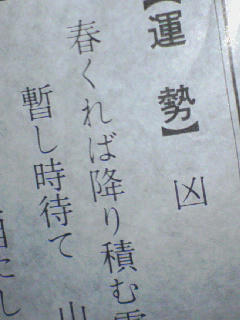 【運勢】 凶
春くれば降り積む
暫し時待て 山